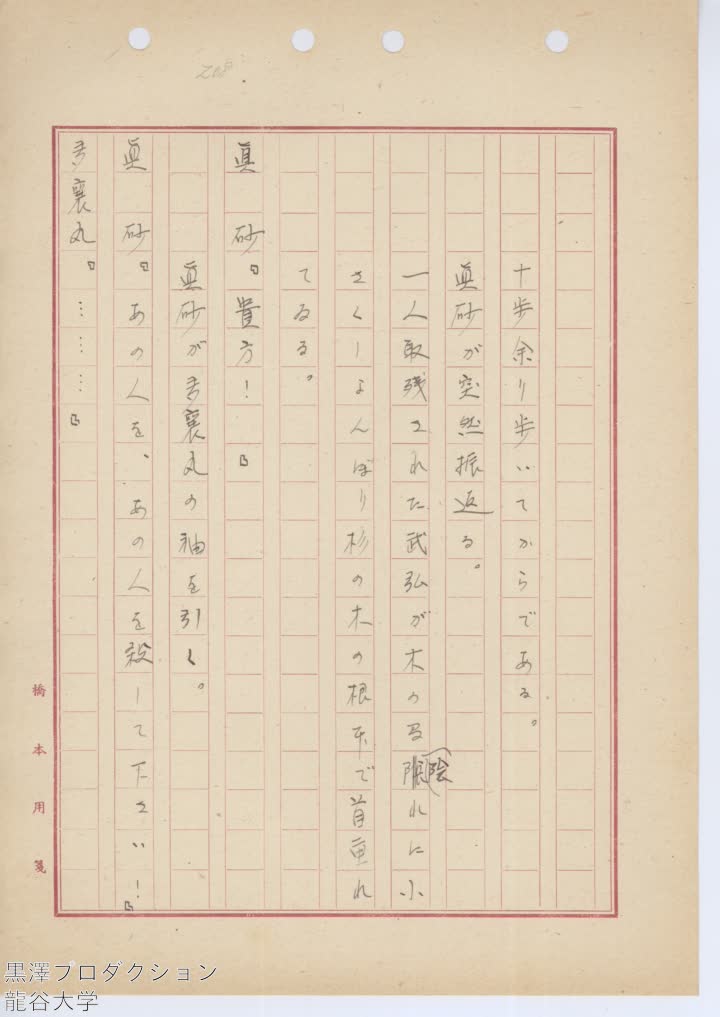 208
十歩余り歩いてからである。
真砂が突然振返る。
一人取残された武弘が木の間隠(陰)れに小
さくしよんぼり杉の木の根下で首垂れ
てゐる。
真　砂。『貴方！　』
真砂が多襄丸の袖を引く。
真　砂。『あの人を、あの人を殺して下さい！』
多襄丸。『………　』
橋本用箋
黒澤プロダクション
龍谷大学